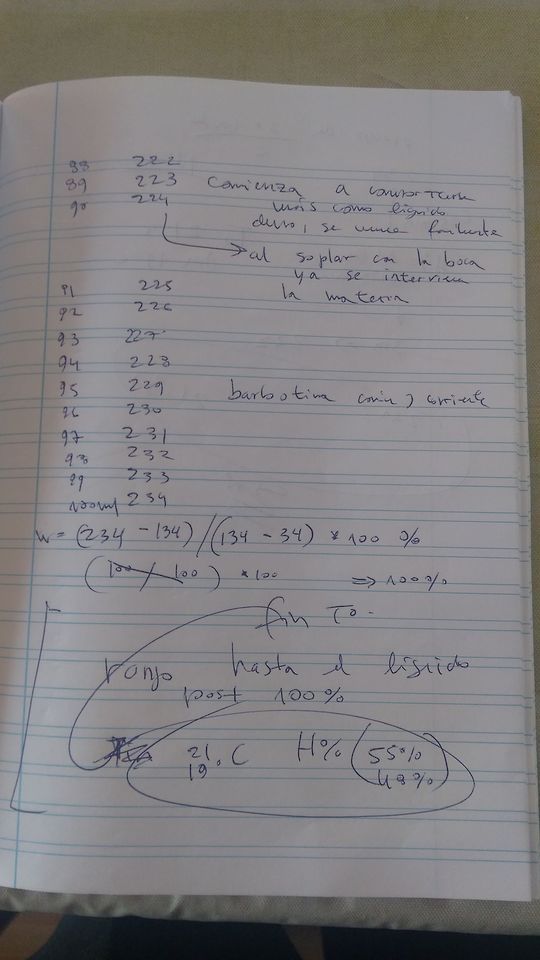 88 222
89 223 comienza a comportarse
90 224 más como líquido
denso, se mueve facilmente
al soplar con la boca
ya se
la materia
91 225
92 226
93 227
94 228
95 229 barbotina común y corriente
96 230
97 231
98 232
99 233
100ml 234
W = (234 - 134) / (134 - 34) * 100 %
(100 / 100) * 100 => 100%
fin T0.
hasta el líquido
post 100%
21 °C H% 55%
19 48%